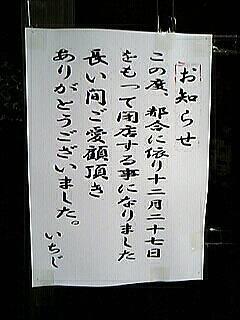 お知らせ
この度、都合に依り十二月二十七日
をもって閉店する事になりました
長い間ご愛顧頂き
ありがとうございました。
いちじ